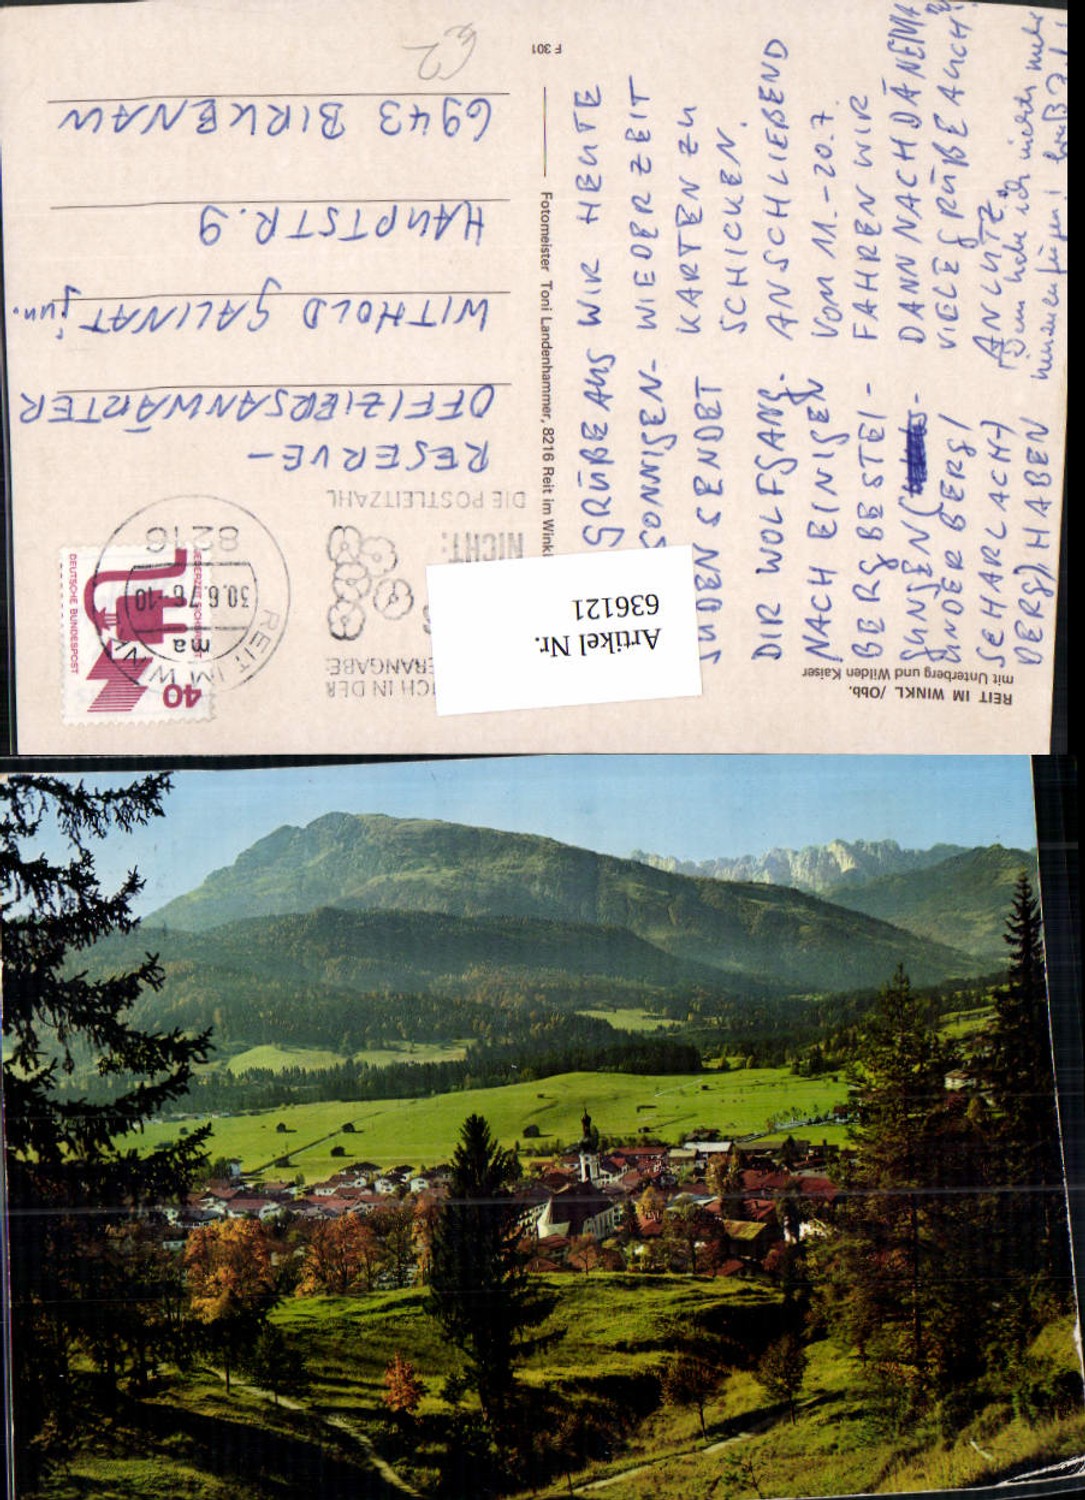 REIT IM WINKL /Obb.
mit Unterberg und Wilden Kaiser
GRÜßE AUS
SONNIGEN-
SÜDEN SENDET
DIR WOLFGANG.
NACH EINIGEN
BERGBESTEI-
GUNGEN (
UNDERBERG/
SCHARLACH
BERG), HABEN
WIR HEUTE
WIEDER ZEIT
KARTEN ZU
SCHICKEN.
ANSCHLIEßEND
VOM 11.-20.7.
FAHREN WIR
DANN NACH DÄNEMA
VIELE GRÜßE AUCH
AN LUTZ.
Dem habe ich nichts mehr
Fotomeister Toni Landenhammer, 8216 Reit im Winkl
F 301
DEUTSCHE BUNDESPOST
JEDERZEIT SICHERHEIT
40
8216
30.6.76-10
ma
REIT IM WINKL
ICH IN DER
ERANGABE:
NICHT:
DIE POSTLEITZAHL
Artikel Nr.
636121
RESERVE-
OFFIZIERSANWÄRTER
WITHOLD GALINAT jun.
HAUPTSTR. 9
6943 BIRKENAU
€2